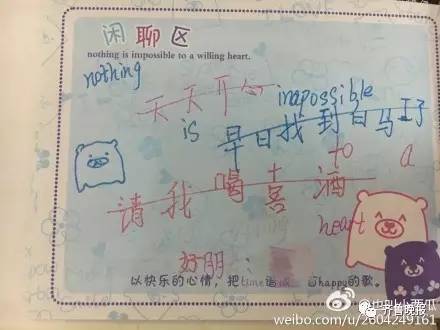 闲聊区
nothing is impossible to a willing heart.
nothing
天天开心 impossible
is 早日找到白马王子
to a
请我喝喜酒
heart
以快乐的心情，把time谱成一首happy的歌。
齐鲁晚报
weibo.com/u/2604249161